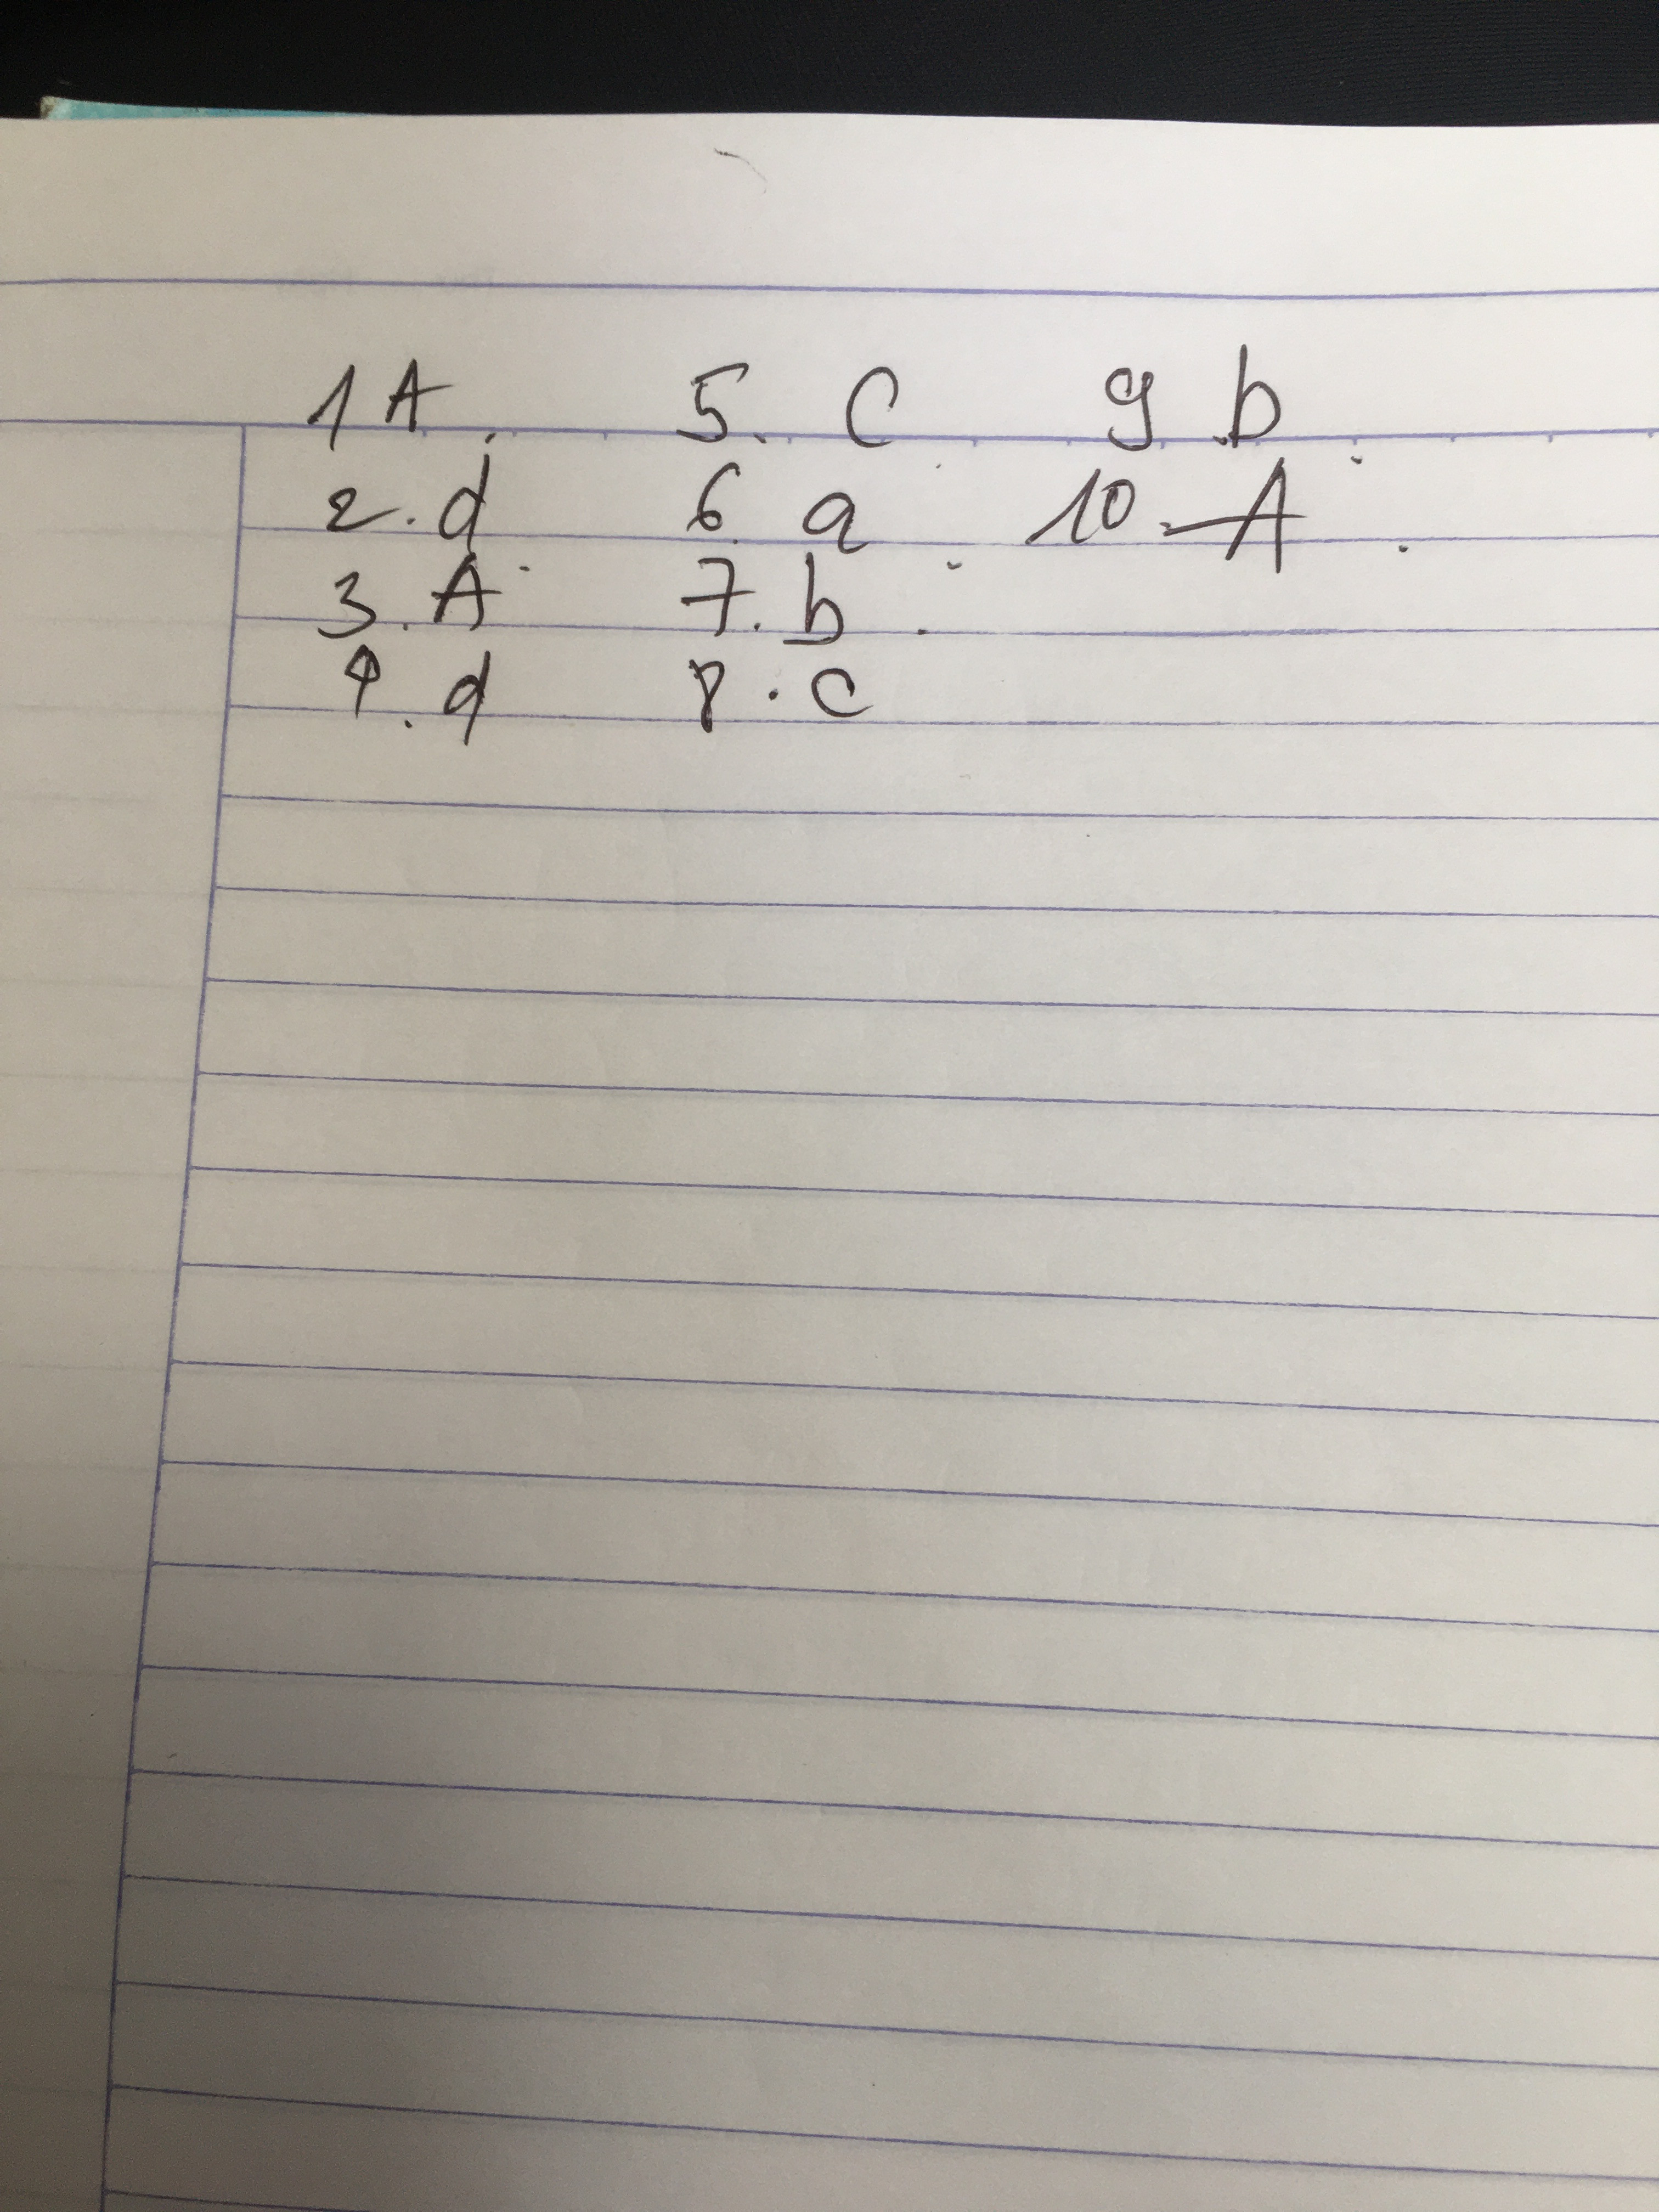 1 A. 5. C 9. b.
2. d 6. a. 10. A.
3. A 7. b.
4. d 8. c